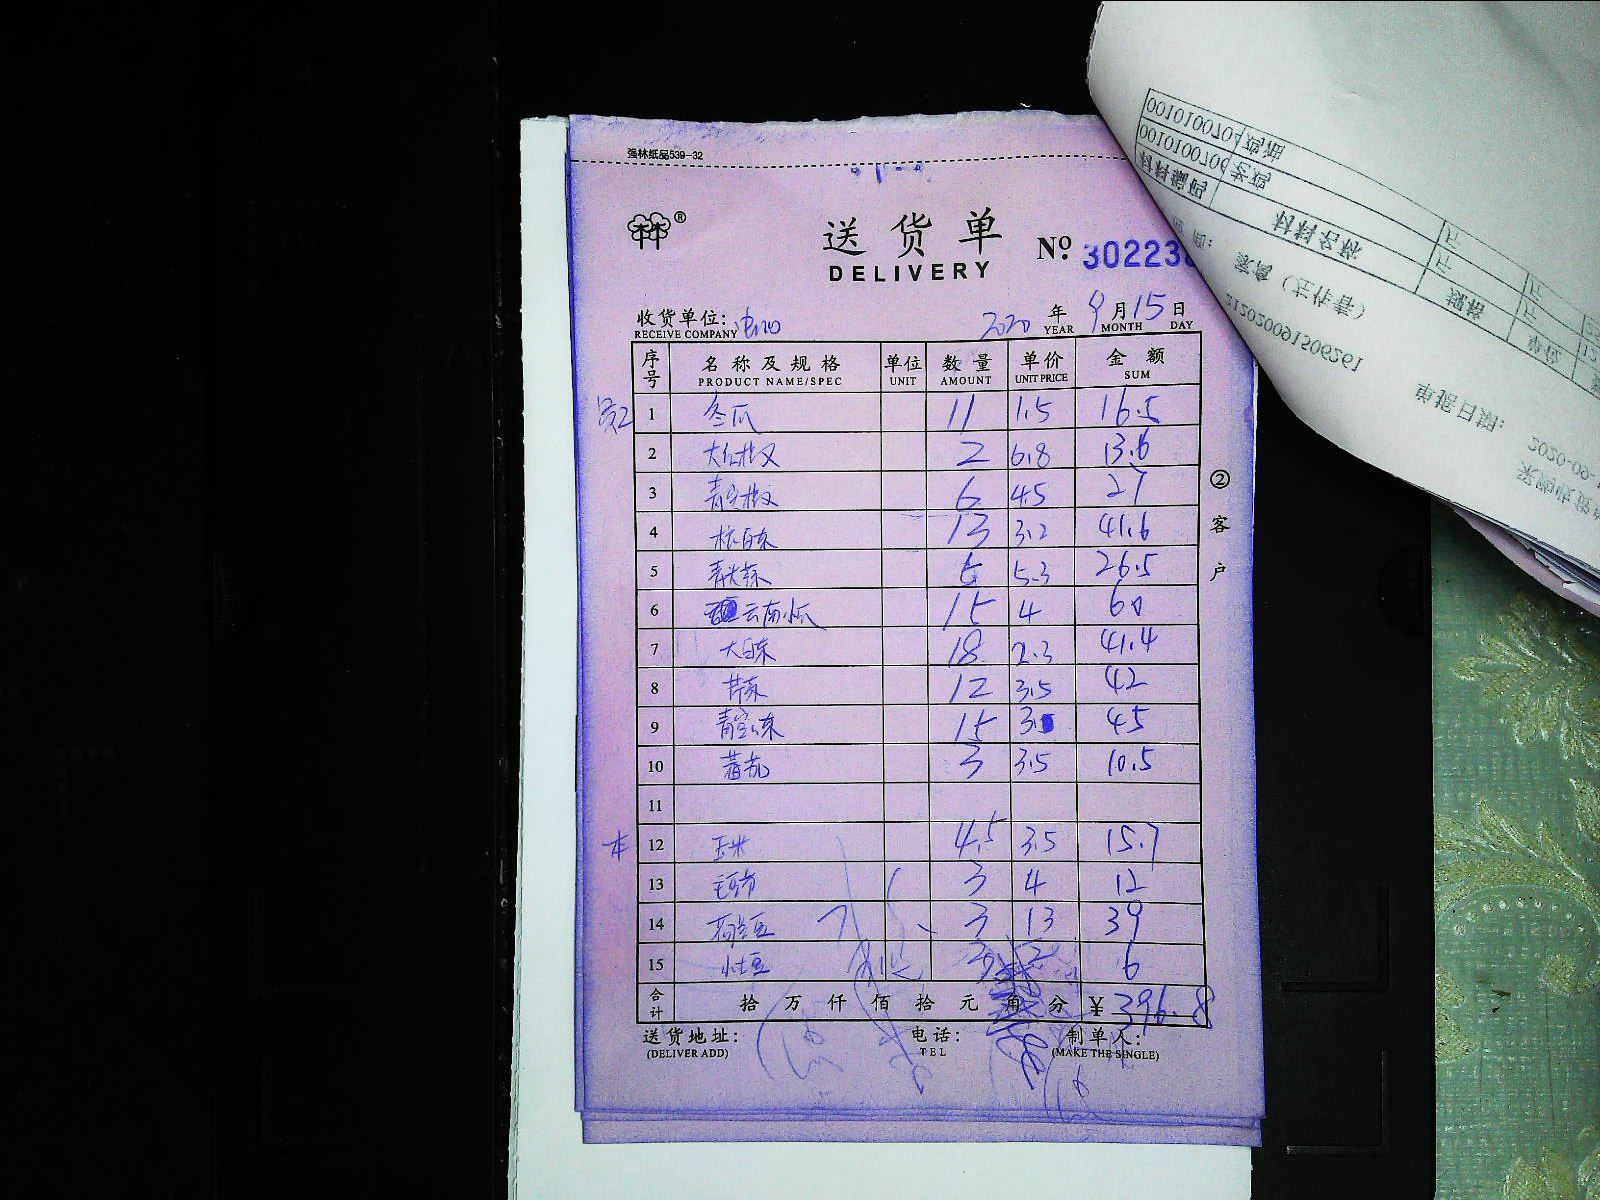 强林纸品539-32
林®
送货单
DELIVERY
Nº 302233
收货单位:
RECEIVE COMPANY
2020 年 9 月 15 日
YEAR MONTH DAY
序号 名称及规格 单位 数量 单价 金额
PRODUCT NAME/SPEC UNIT AMOUNT UNIT PRICE SUM
1 冬瓜 11 1.5 16.5
2 大红椒 2 6.8 13.6
3 青尖椒 6 4.5 27
4 13 3.2 41.6
5 青大蒜 5 5.3 26.5
6 云南小瓜 15 4 60
7 大白菜 18 2.3 41.4
8 芹菜 12 3.5 42
9 15 3 45
10 蕃茄 3 3.5 10.5
11
本 12 玉米 4.5 3.5 15.7
13 3 4 12
14 荷兰豆 3 13 39
15 小土豆 2 6
合计 拾万仟佰拾元角分 ¥ 396.8
送货地址: 电话: 制单人:
(DELIVER ADD) TEL (MAKE THE SINGLE)
②客户
0010100704 鸡油
0010100706 老鸡
材料编码 材料名称 规格
家禽
212020091506261
单据日期: 2020-09-